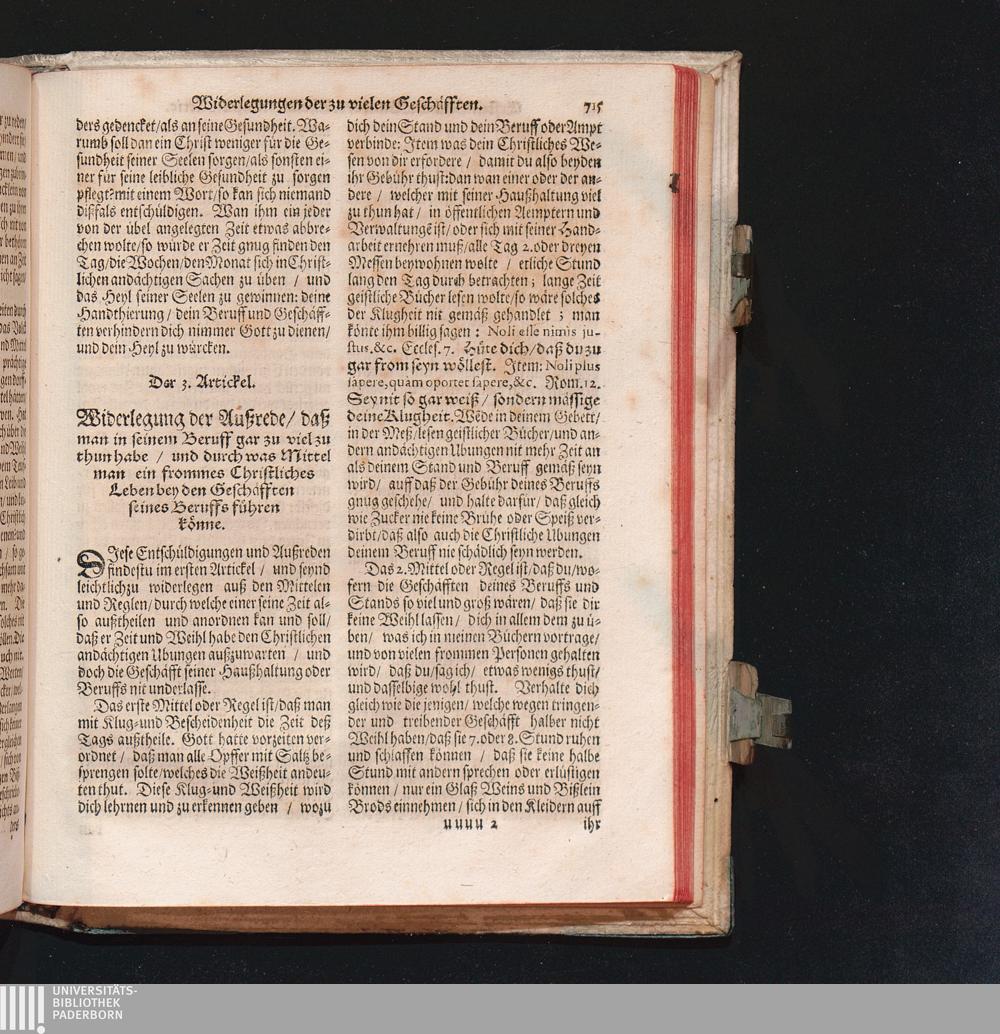 Widerlegungen der zu vielen Geschäfften. 715
ders gedencket/als an seine Gesundheit. Wa-
rumb soll dan ein Christ weniger für die Ge-
sundheit seiner Seelen sorgen/als sonsten ei-
ner für seine leibliche Gesundheit zu sorgen
pflegt? mit einem Wort/so kan sich niemand
dißfals entschüldigen. Wan ihm ein jeder
von der übel angelegten Zeit etwas abbre-
chen wolte/so würde er Zeit gnug finden den
Tag/die Wochen/den Monat sich in Christ-
lichen andächtigen Sachen zu üben / und
das Heyl seiner Seelen zu gewinnen: deine
Handthierung / dein Beruff und Geschäff-
ten verhindern dich nimmer Gott zu dienen/
und dein Heyl zu würcken.
Der 3. Artickel.
Widerlegung der Außrede / daß
man in seinem Beruff gar zu viel zu
thun habe / und durch was Mittel
man ein frommes Christliches
Leben bey den Geschäfften
seines Beruffs führen
könne.
DIese Entschüldigungen und Außreden
findestu im ersten Artickel / und seynd
leichtlich zu widerlegen auß den Mittelen
und Reglen/durch welche einer seine Zeit al-
so außtheilen und anordnen kan und soll/
daß er Zeit und Weihl habe den Christlichen
andächtigen Ubungen außzuwarten / und
doch die Geschäfft seiner Haußhaltung oder
Beruffs nit underlasse.
Das erste Mittel oder Regel ist/daß man
mit Klug- und Bescheidenheit die Zeit deß
Tags außtheile. Gott hatte vorzeiten ver-
ordnet / daß man alle Opffer mit Saltz be-
sprengen solte/welches die Weißheit andeu-
ten thut. Diese Klug- und Weißheit wird
dich lehrnen und zu erkennen geben / wozu
dich dein Stand und dein Beruff oder Ampt
verbinde: Item was dein Christliches We-
sen von dir erfordere / damit du also beyden
ihr Gebühr thust: dan wan einer oder der an-
dere / welcher mit seiner Haußhaltung viel
zu thun hat / in öffentlichen Aemptern und
Verwaltungē ist/oder sich mit seiner Hand-
arbeit ernehren muß/alle Tag 2. oder dreyen
Messen beywohnen wolte / etliche Stund
lang den Tag durch betrachten ; lange Zeit
geistliche Bücher lesen wolte/so wäre solches
der Klugheit nit gemäß gehandlet ; man
könte ihm billig sagen : Noli esse nimis ju-
stus, &c. Eccles. 7. Hüte dich/daß du zu
gar from seyn wöllest. Item: Noli plus
sapere, quàm oportet sapere, &c. Rom. 12.
Sey nit so gar weiß / sondern mässige
deine Klugheit. Wēde in deinem Gebett/
in der Meß/lesen geistlicher Bücher/und an-
dern andächtigen Ubungen nit mehr Zeit an
als deinem Stand und Beruff gemäß seyn
wird/ auff daß der Gebühr deines Beruffs
gnug geschehe/ und halte darfür/ daß gleich
wie Zucker nie keine Brühe oder Speiß ver-
dirbt/daß also auch die Christliche Ubungen
deinem Beruff nie schädlich seyn werden.
Das 2. Mittel oder Regel ist/daß du/wo-
fern die Geschäfften deines Beruffs und
Stands so viel und groß wären/ daß sie dir
keine Weihl lassen / dich in allem dem zu ü-
ben/ was ich in meinen Büchern vortrage/
und von vielen frommen Personen gehalten
wird/ daß du/sag ich/ etwas wenigs thust/
und dasselbige wohl thust. Verhalte dich
gleich wie die jenigen/ welche wegen tringen-
der und treibender Geschäfft halber nicht
Weihl haben/daß sie 7. oder 8. Stund ruhen
und schlaffen können / daß sie keine halbe
Stund mit andern sprechen oder erlüstigen
können / nur ein Glaß Weins und Bißlein
Brods einnehmen / sich in den Kleidern auff
uuuu 2 ihr
UNIVERSITÄTS-
BIBLIOTHEK
PADERBORN